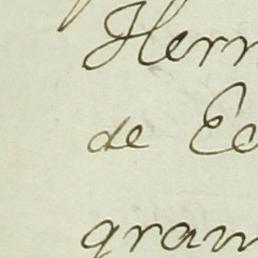 Herr
de Ec
gran